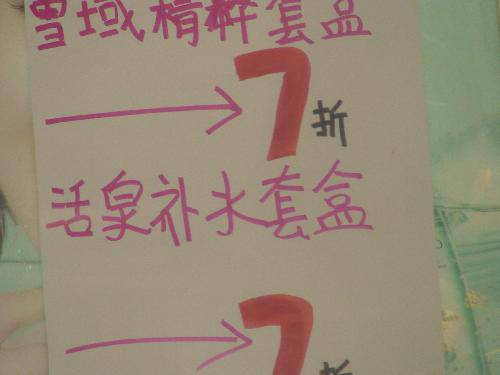 雪域精粹套盒
→7折
活泉补水套盒
→7折